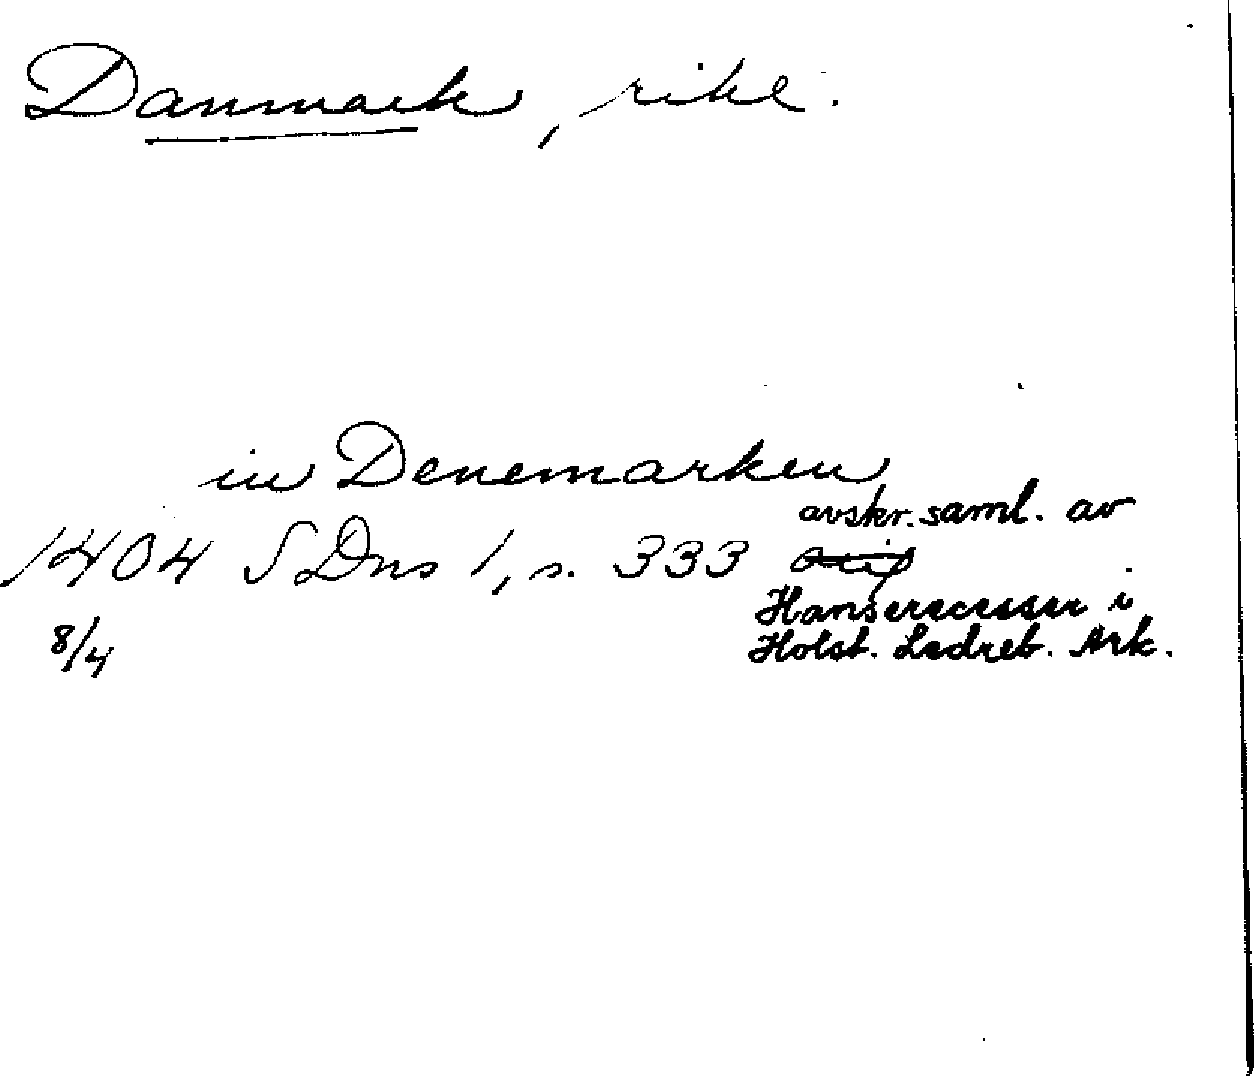 Danmark, rike.
in Denemarken
avskr. saml. av
1404 SDns 1, s. 333 orig
Hanserecesser i
8/4
Holst. Ledreb. Ark.